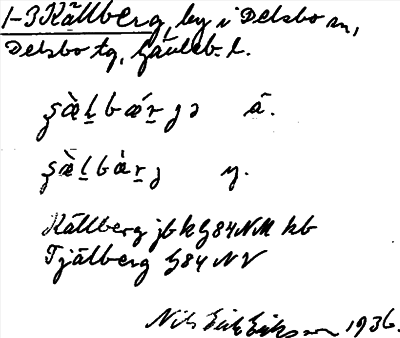 1-3 Källberg, by i Delsbo sn,
Delsbo tg, Gävleb. l.
ʂæ̀ḻbǽṟjə ä.
ʂæ̀ḻbàṟj y.
Källberg jb k G84NM kb
Tjälberg G84 NV
Nils Erik Eriksson 1936.